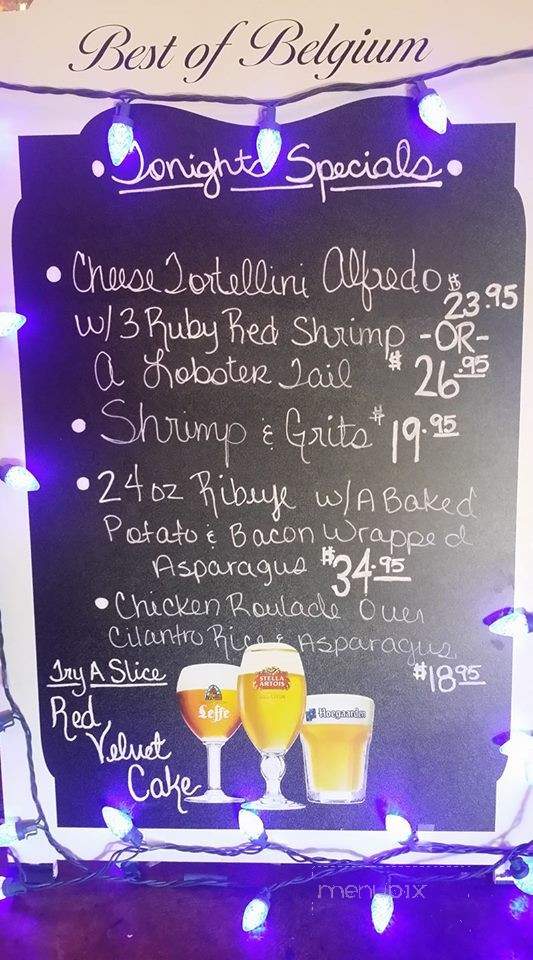 Best of Belgium
• Tonights Specials •
• Cheese Tortellini Alfredo $23.95
w/3 Ruby Red Shrimp -OR-
A Lobster Tail $26.95
• Shrimp & Grits $19.95
• 24oz Ribeye w/A Baked
Potato & Bacon Wrapped
Asparagus $34.95
• Chicken Roulade Over
Cilantro Rice & Asparagus
$18.95
Try A Slice
Red
Velvet
Cake
Leffe
STELLA
ARTOIS
Hoegaarden
menubix